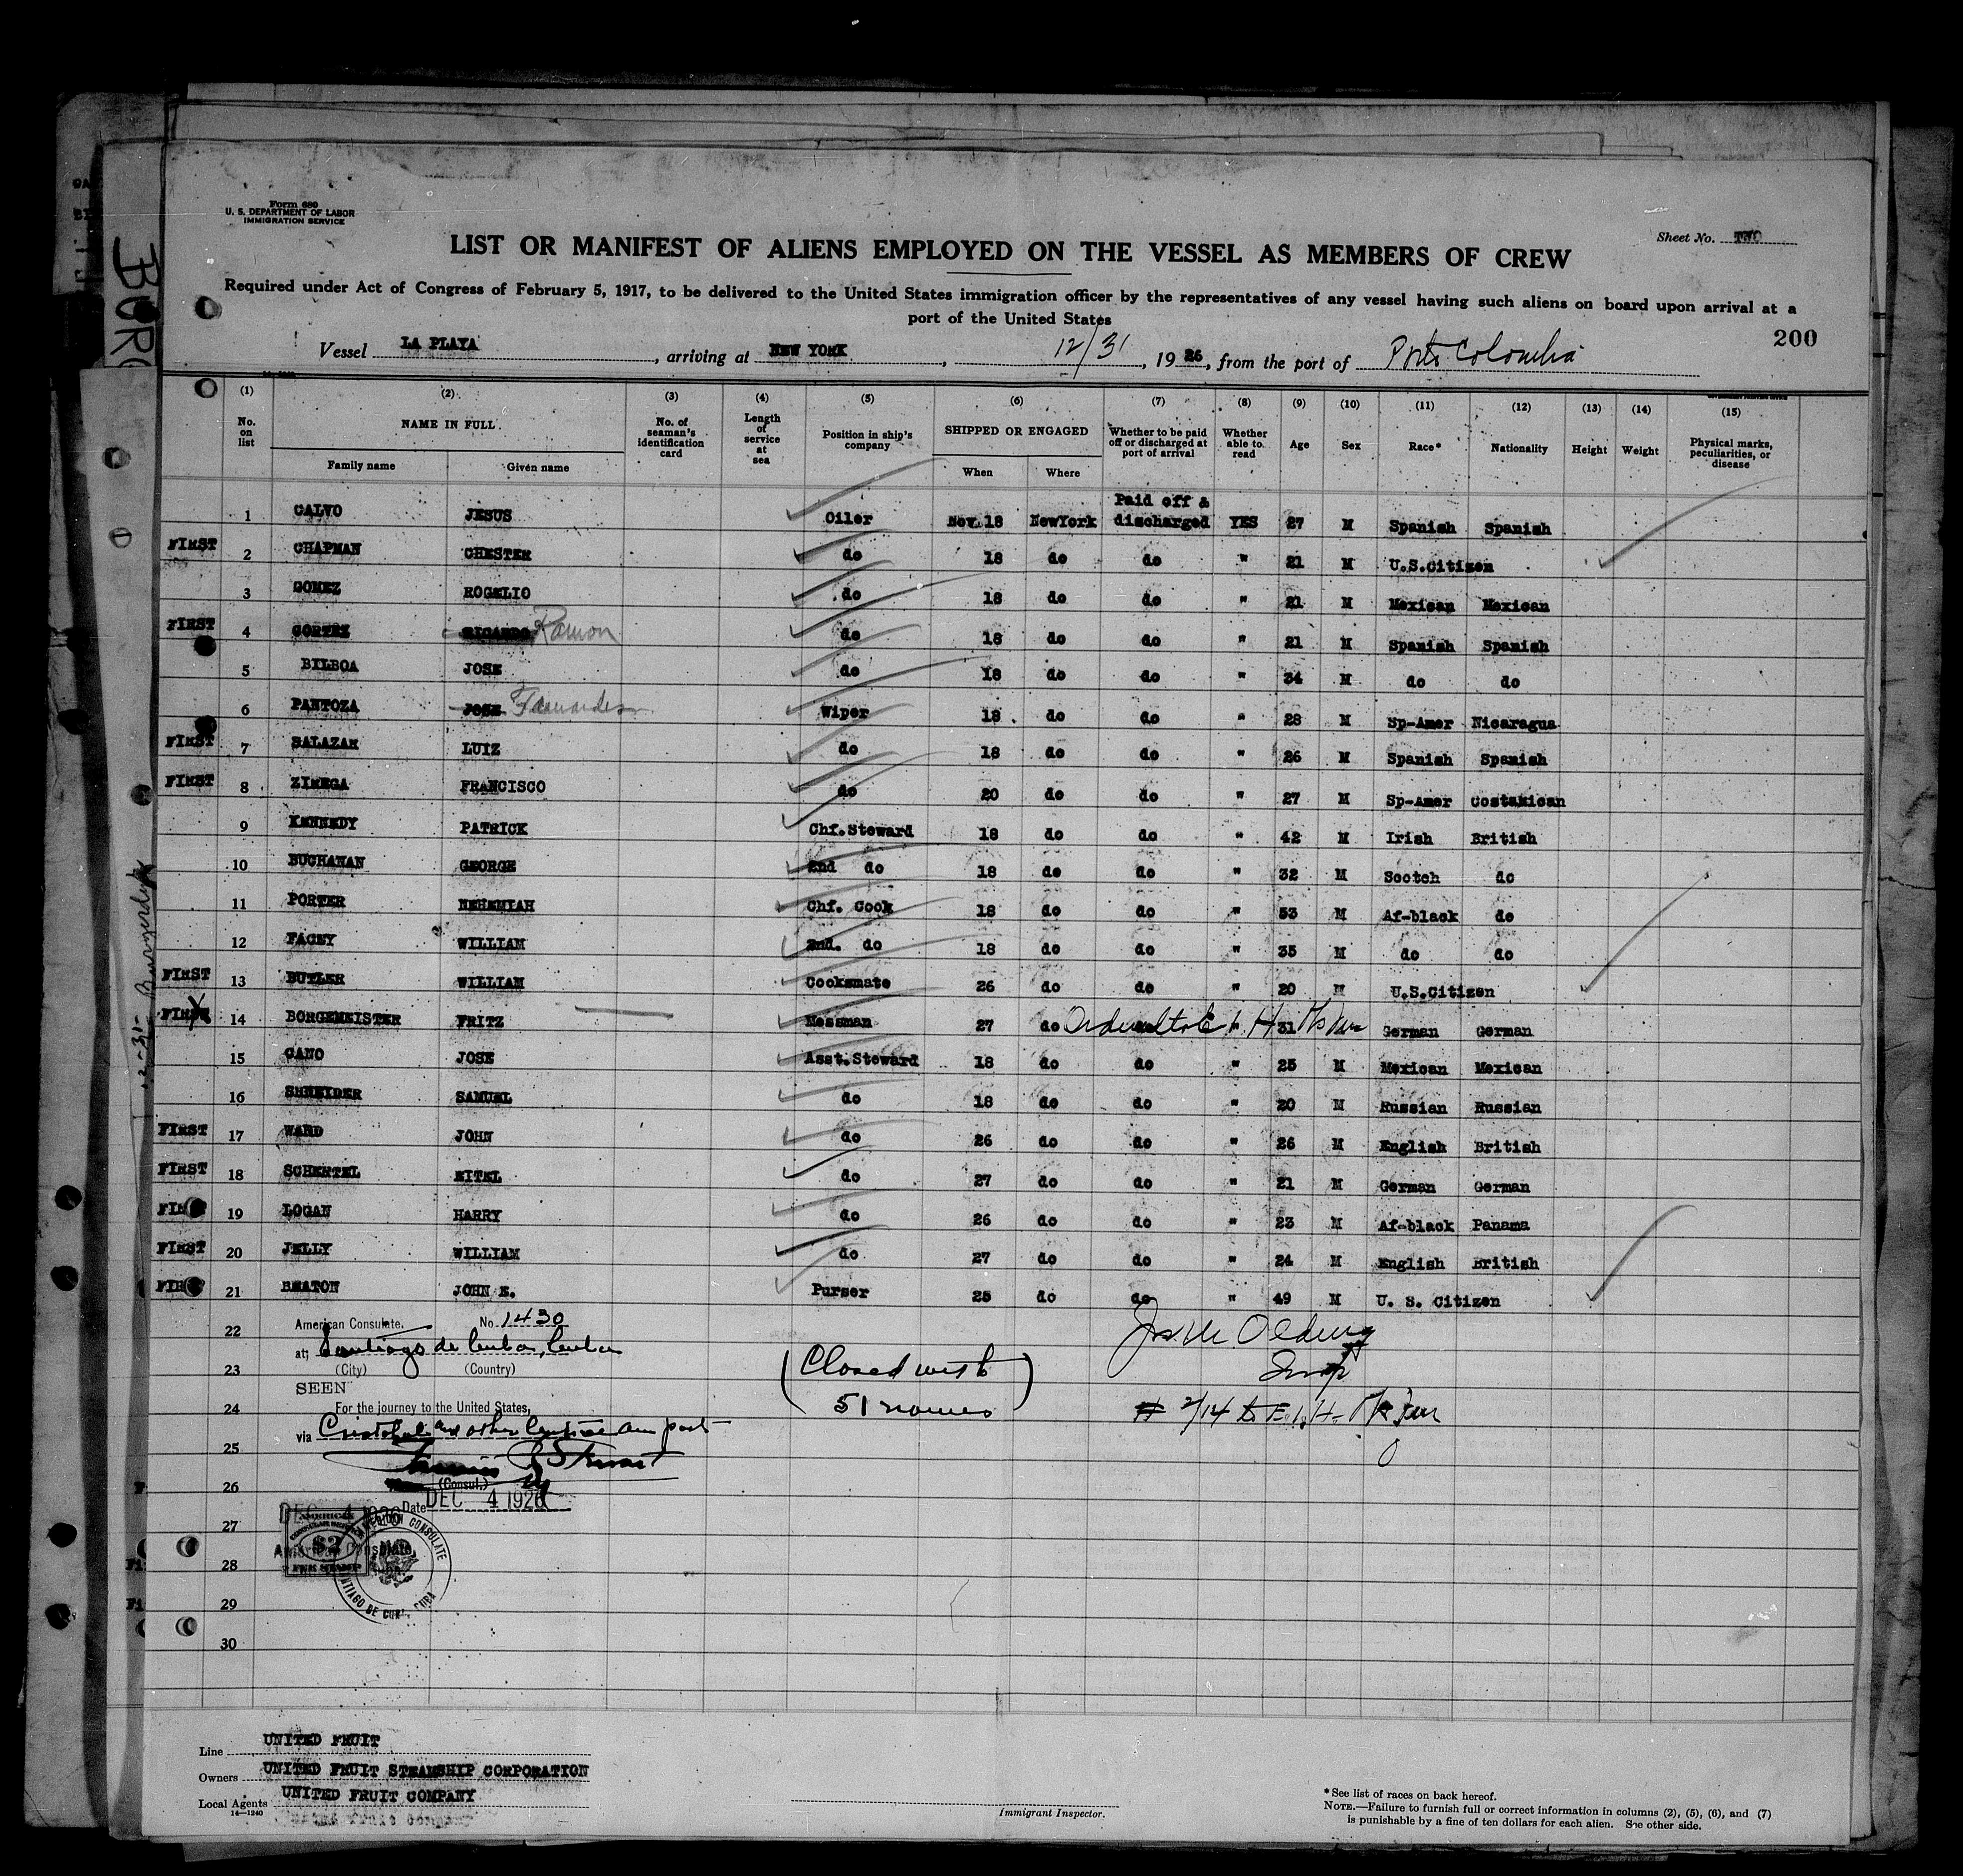 Form 680
U. S. DEPARTMENT OF LABOR
IMMIGRATION SERVICE
Sheet No. TWO
LIST OR MANIFEST OF ALIENS EMPLOYED ON THE VESSEL AS MEMBERS OF CREW
Required under Act of Congress of February 5, 1917, to be delivered to the United States immigration officer by the representatives of any vessel having such aliens on board upon arrival at a
port of the United States
200
Vessel LA PLAYA, arriving at NEW YORK, 12/31, 1926, from the port of Porto Colombia
(1) (2) (3) (4) (5) (6) (7) (8) (9) (10) (11) (12) (13) (14) (15)
No. on list NAME IN FULL No. of seaman's identification card Length of service at sea Position in ship's company SHIPPED OR ENGAGED Whether to be paid off or discharged at port of arrival Whether able to read Age Sex Race* Nationality Height Weight Physical marks, peculiarities, or disease
Family name Given name When Where
1 CALVO JESUS Oiler Nov. 18 NewYork Paid off & discharged YES 27 M Spanish Spanish
FIRST 2 CHAPMAN CHESTER do 18 do do " 21 M U.S.Citizen
3 GOMEZ ROGELIO do 18 do do " 21 M Mexican Mexican
FIRST 4 CORTEZ RICARDO Ramon do 18 do do " 21 M Spanish Spanish
5 BILBOA JOSE do 18 do do " 34 M do do
6 PANTOZA JOSE Fernandes Wiper 18 do do " 28 M Sp-Amer Nicaragua
FIRST 7 SALAZAR LUIZ do 18 do do " 26 M Spanish Spanish
FIRST 8 ZIREGA FRANCISCO do 20 do do " 27 M Sp-Amer CostaRican
9 KENNEDY PATRICK Chf.Steward 18 do do " 42 M Irish British
10 BUCHANAN GEORGE 2nd do 18 do do " 32 M Scotch do
11 PORTER NEHEMIAH Chf. Cook 18 do do " 53 M Af-black do
12 FACEY WILLIAM 2nd. do 18 do do " 35 M do do
FIRST 13 BUTLER WILLIAM Cooksmate 26 do do " 20 M U.S.Citizen
FIRST 14 BORGEMEISTER FRITZ Messman 27 do " 31 German German
15 CANO JOSE Asst.Steward 18 do do " 25 M Mexican Mexican
16 SHNEYDER SAMUEL do 18 do do " 20 M Russian Russian
FIRST 17 WARD JOHN do 26 do do " 26 M English British
FIRST 18 SCHERTEL EITEL do 27 do do " 21 M German German
FIRST 19 LOGAN HARRY do 26 do do " 23 M Af-black Panama
FIRST 20 JELLY WILLIAM do 27 do do " 24 M English British
FIRST 21 BEATON JOHN E. Purser 25 do do " 49 M U. S. Citizen
22 American Consulate. No 1430
at Santiago de Cuba, Cuba
23 (City) (Country)
(Closed with
51 names)
SEEN
24 For the journey to the United States,
via Cristobal and other Central Am ports
25
(Consul.)
26 Date DEC 4 1926
27
28
29
30
AMERICAN
CONSULAR SERVICE
$2
FEE STAMP
AMERICAN CONSULATE
SANTIAGO DE CUBA, CUBA
Line UNITED FRUIT
Owners UNITED FRUIT STEAMSHIP CORPORATION
Local Agents UNITED FRUIT COMPANY
14—1240
Immigrant Inspector.
*See list of races on back hereof.
NOTE.—Failure to furnish full or correct information in columns (2), (5), (6), and (7)
is punishable by a fine of ten dollars for each alien. See other side.